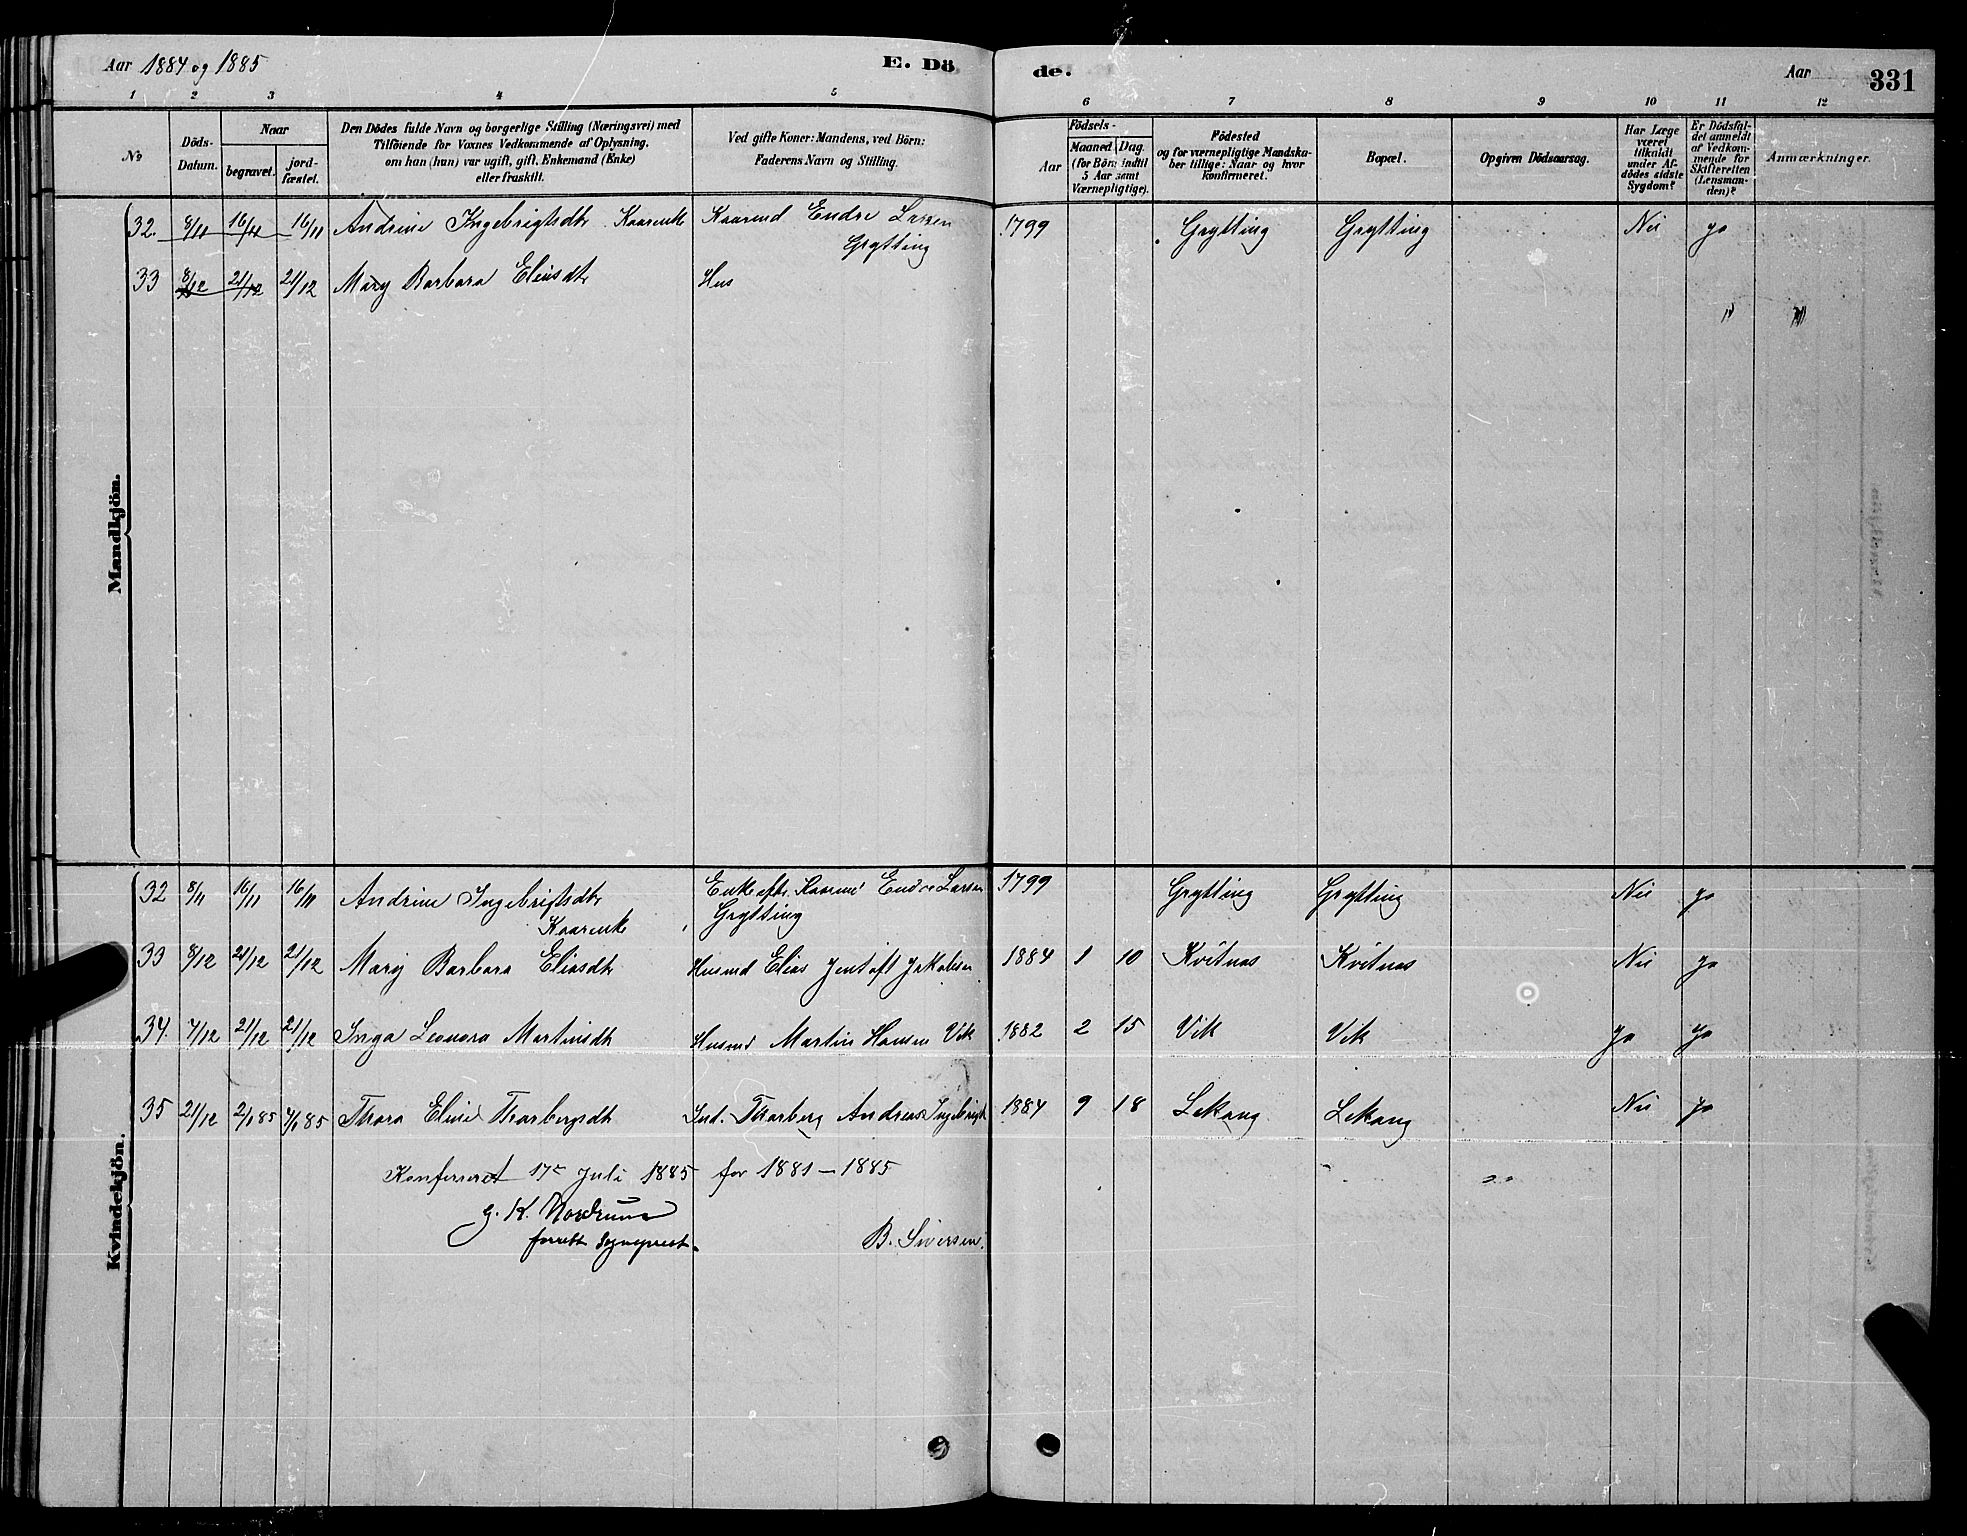 Aar 1884 og 1885
E. Dö
de.
Aar
331
1 2 3 4 5 6 7 8 9 10 11 12
No
Döds-
Datum.
Naar
begravet.
jord-
fæstet.
Den Dödes fulde Navn og borgerlige Stilling (Næringsvei) med
Tilföiende for Voxnes Vedkommende af Oplysning,
om han (hun) var ugift, gift, Enkemand (Enke)
eller fraskilt.
Ved gifte Koner: Mandens, ved Börn:
Faderens Navn og Stilling.
Födsels-
Aar
Maaned Dag.
(for Börn indtil
5 Aar samt
Værnepligtige).
Födested
og for værnepligtige Mandska-
ber tillige: Naar og hvor
konfirmeret.
Bopæl.
Opgiven Dödsaarsag.
Har Læge
været
tilkaldt
under Af-
dödes sidste
Sygdom?
Er Dödsfal-
det anmeldt
af Vedkom-
mende for
Skifteretten
(Lensman-
den)?
Anmærkninger.
Mandkjön.
32. 8/11 16/11 16/11 Andrine Ingebrigtsdtr Kaarenke Kaarmd Endre Larsen 1799 Grytting Grytting Nei ja
Grytting
33 8/12 21/12 21/12 Mary Barbara Eliasdtr Hus
Kvindekjön.
32 8/11 16/11 16/11 Andrine Ingebrigtsdtr Enke eftr. Kaarmd Endre Larsen 1799 Grytting Grytting Nei ja
Kaarenke Grytting
33 8/12 21/12 21/12 Mary Barbara Eliasdtr Husmd Elias Jentoft Jakobsen 1884 1 10 Kvitnes Kvitnes Nei ja
34. 7/12 21/12 21/12 Inga Leonora Martinsdtr Husmd Martin Hansen Vik 1882 2 15 Vik Vik ja ja
35 21/12 2/1 85 4/1 85 Thora Eline Thorbergsdtr Ind. Thorberg Andreas Ingebrigts 1884 9 18 Lekang Lekang Nei ja
Konfereret 17de Juli 1885 for 1881 – 1885
G. K. Nordrum
forrettr Sogneprest.
B. Siversen.